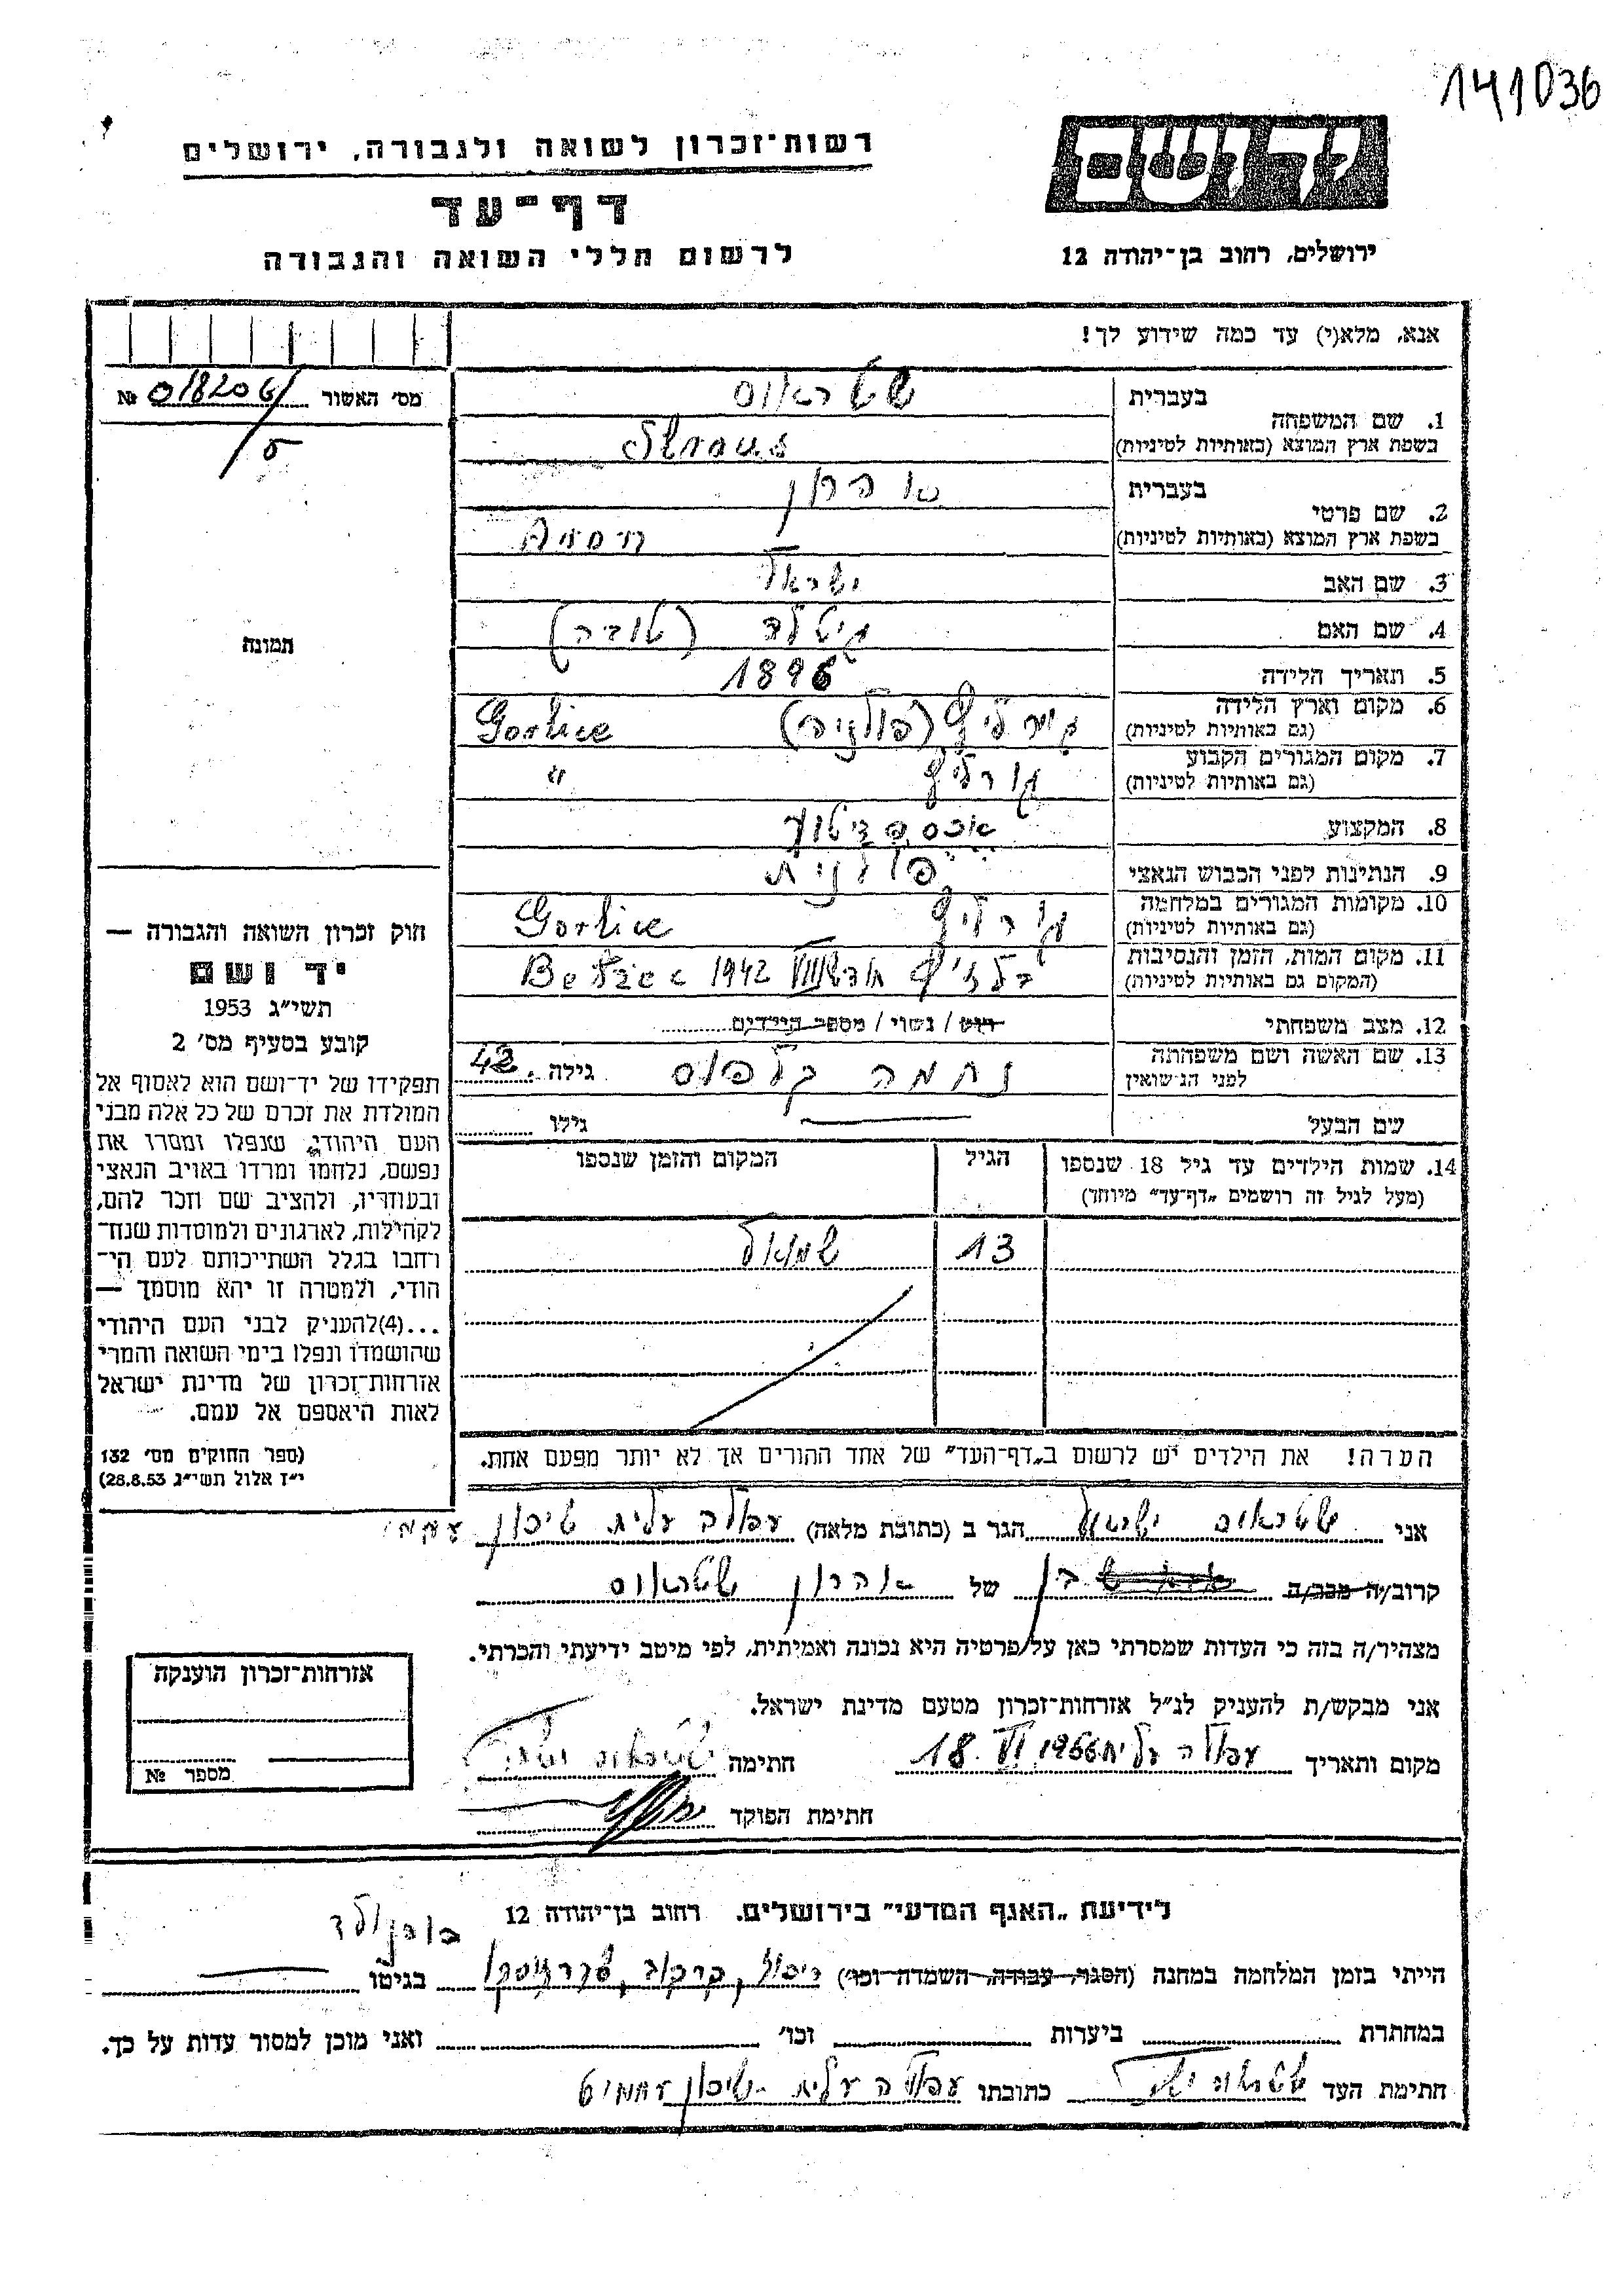 141036
יד ושם
ירושלים, רחוב בן־יהודה 12
רשות־זכרון לשואה ולגבורה, ירושלים
דף־עד
לרשום חללי השואה והגבורה
אנא, מלא(י) עד כמה שידוע לך!
מס׳ האשור №
5
תמונה
חוק זכרון השואה והגבורה —
יד ושם
תשי״ג 1953
קובע בסעיף מס׳ 2
תפקידו של יד־ושם הוא לאסוף אל
המולדת את זכרם של כל אלה מבני
העם היהודי, שנפלו ומסרו את
נפשם, נלחמו ומרדו באויב הנאצי
ובעוזריו, ולהציב שם וזכר להם,
לקהילות, לארגונים ולמוסדות שנח־
רחבו בגלל השתייכותם לעם הי־
הודי, ולמטרה זו יהא מוסמך —
...(4)להעניק לבני העם היהודי
שהושמדו ונפלו בימי השואה והמרי
אזרחות־זכרון של מדינת ישראל
לאות היאספם אל עמם.
(ספר החוקים מס׳ 132
י״ז אלול תשי״ג 28.8.53)
בעברית שטראוס
1. שם המשפחה
בשפת ארץ המוצא (באותיות לטיניות) Straus
בעברית אהרון
2. שם פרטי
בשפת ארץ המוצא (באותיות לטיניות) Aron
3. שם האב ישראל
4. שם האם גיטלה (טובה)
5. תאריך הלידה 1896
6. מקום וארץ הלידה גורליץ (פולניה) Gorlice
(גם באותיות לטיניות)
7. מקום המגורים הקבוע גורליץ "
(גם באותיות לטיניות)
8. המקצוע אכספדיטור
9. הנתינות לפני הכבוש הנאצי פולנית
10. מקומות המגורים במלחמה גורליץ Gorlice
(גם באותיות לטיניות)
11. מקום המות, הזמן והנסיבות בלז׳ץ חודש VIII 1942 Bełzec
(המקום גם באותיות לטיניות)
12. מצב משפחתי רווק / נשוי / מספר הילדים
13. שם האשה ושם משפחתה נחמה קלפוס גילה 42
לפני הנשואין
שם הבעל גילו
14. שמות הילדים עד גיל 18 שנספו הגיל המקום והזמן שנספו
(מעל לגיל זה רושמים „דף־עד״ מיוחד)
13 שמואל
הערה! את הילדים יש לרשום ב„דף־העד״ של אחד ההורים אך לא יותר מפעם אחת.
אני שטראוס ישראל הגר ב (כתובת מלאה) עפולה עלית שיכון עממי
קרוב/ה מכר/ה בן של אהרון שטראוס
מצהיר/ה בזה כי העדות שמסרתי כאן על פרטיה היא נכונה ואמיתית, לפי מיטב ידיעתי והכרתי.
אני מבקש/ת להעניק לנ״ל אזרחות־זכרון מטעם מדינת ישראל.
מקום ותאריך עפולה עלית 18. VI 1956 חתימה שטראוס ישראל
חתימת הפוקד
אזרחות־זכרון הוענקה
מספר №
לידיעת „האגף המדעי״ בירושלים. רחוב בן־יהודה 12
בוכנולד
הייתי בזמן המלחמה במחנה (הסגר, עבודה, השמדה וכו׳) קרקוב, בגיטו
במחתרת ביערות וכו׳ ואני מוכן למסור עדות על כך.
חתימת העד שטראוס ישראל כתובתו עפולה עלית שיכון עממי